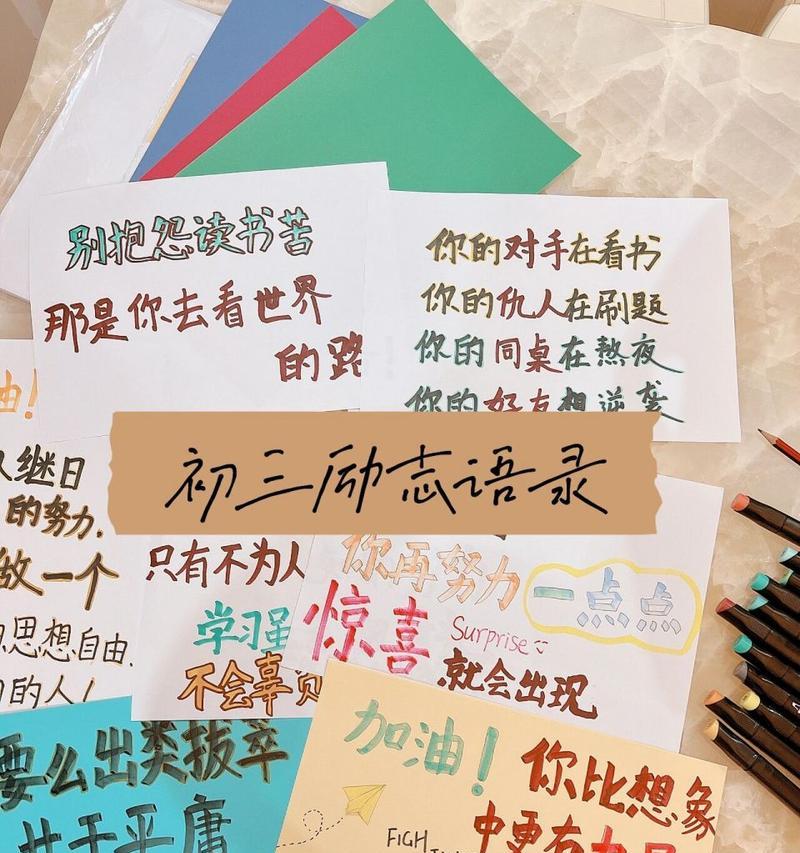 别抱怨读书苦
那是你去看世界
的路
你的对手在看书
你的仇人在刷题
你的同桌在熬夜
你的好友想逆袭
初三励志语录
油!
继日
的努力,
做一个
思想自由,
的人!
只有不为人
学习虽
不会辜负
你再努力一点点
惊喜 Surprise
就会出现
要么出类拔萃
甘于平庸
加油!
你比想象
中更有力量
FIGH